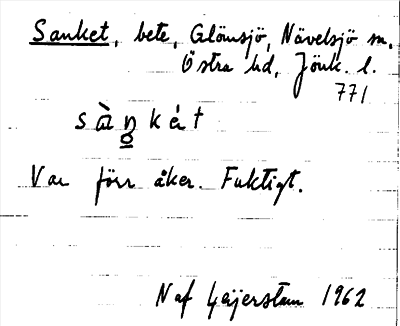 Sanket, bete, Glömsjö, Nävelsjö sn,
Östra hd, Jönk. l.
771
sàŋkét
Var förr åker. Fuktigt.
N af Geijerstam 1962